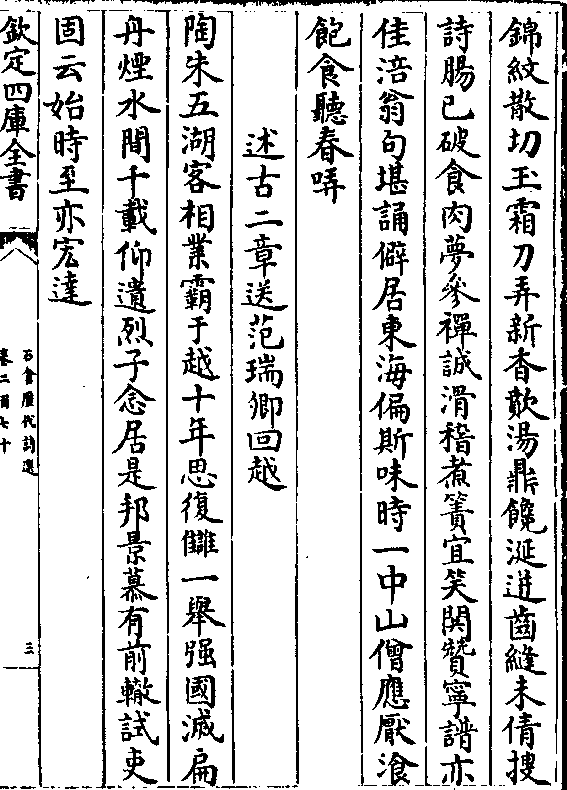 錦紋散切玉霜刀弄新杳歕湯鼎饞涎迸齒縫未倩搜
詩腸已破食肉夢參禪誠滑稽煮簀宜笑閧贊寧譜亦
佳涪翁句堪誦僻居東海偏斯味時一中山僧應厭飡
飽食聽春哢
述古二章送范瑞卿回越
陶朱五湖客相業霸于越十年思復讎一舉强國滅扁
舟煙水間千載仰遺烈子念居是邦景慕有前轍試吏
固云始時至亦宏達
欽定四庫全書
石倉歷代詩選
卷二百七十
三